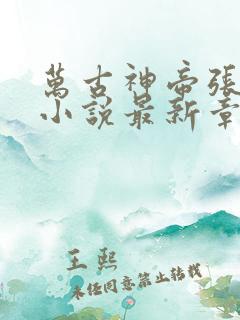 萬古神帝張
小說最新章
王熙
未經同意禁止轉載